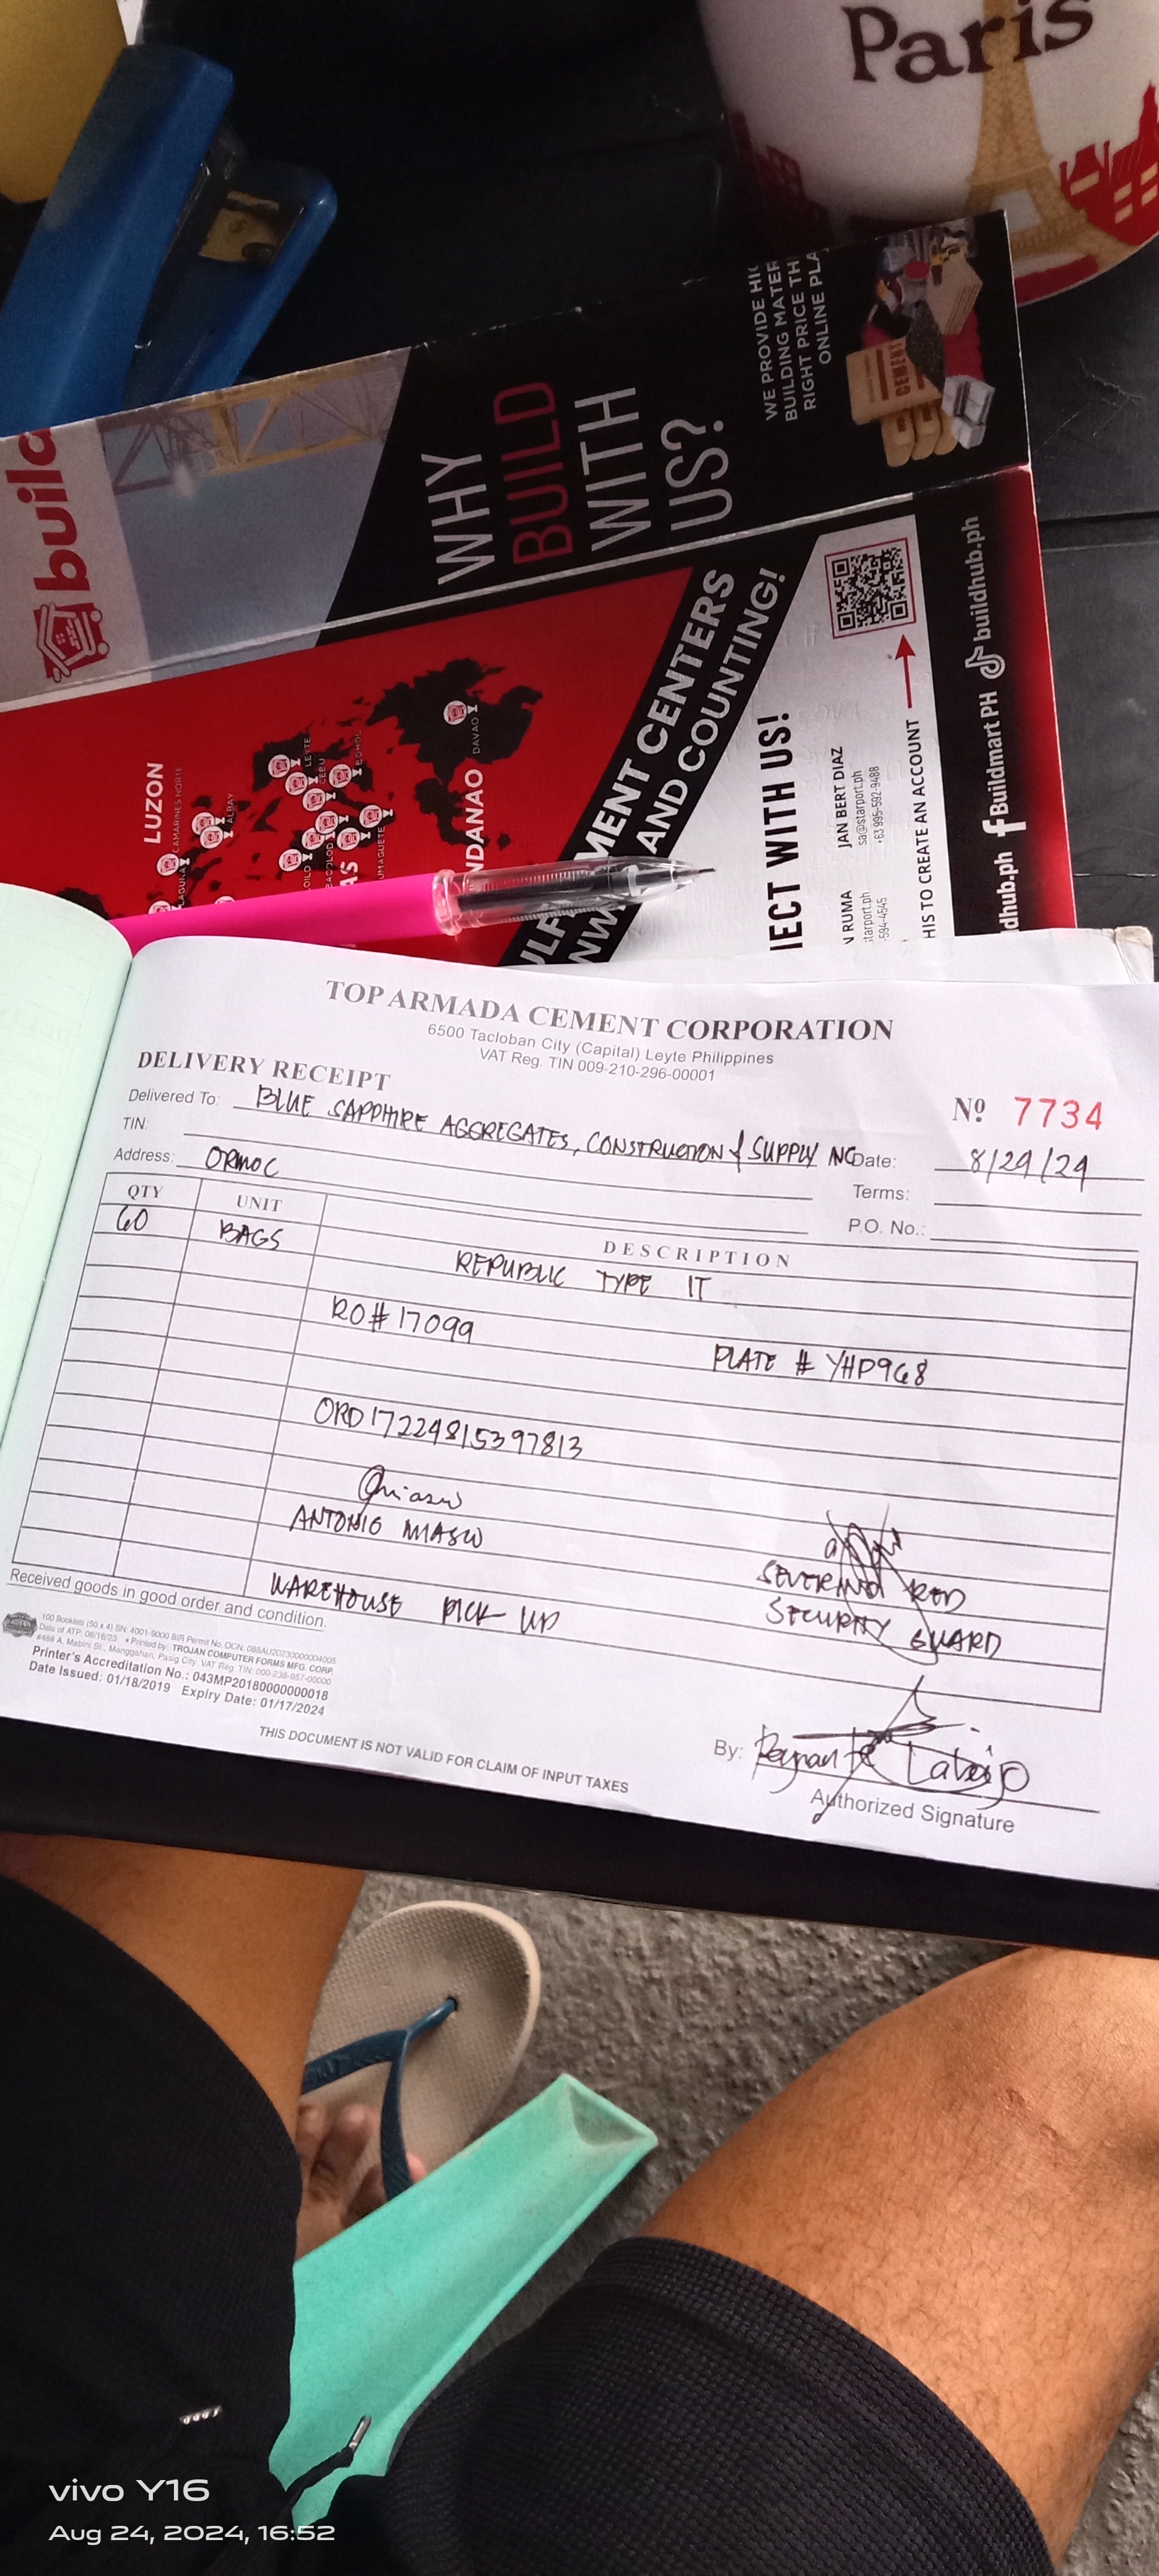 Paris
build
WHY
BUILD
WITH
US?
WE PROVIDE
BUILDING
RIGHT PRICE
ONLINE
CEMENT
LUZON
CAMARINES NORTE
LAGUNA
ALBAY
LEYTE
CEBU
BOHOL
DAVAO
CENTERS
AND COUNTING!
WITH US!
JAN BERT DIAZ
sa@starport.ph
+63 995-592-9488
RUMA
TO CREATE AN ACCOUNT
Buildmart PH buildhub.ph
TOP ARMADA CEMENT CORPORATION
6500 Tacloban City (Capital) Leyte Philippines
VAT Reg. TIN 009-210-296-00001
DELIVERY RECEIPT
Nº 7734
Delivered To: BLUE SAPPHIRE AGGREGATES, CONSTRUCTION & SUPPLY INC Date: 8/24/24
TIN: Terms:
Address: ORMOC P.O. No.:
QTY UNIT DESCRIPTION
60 BAGS REPUBLIC TYPE IT
RO# 17099 PLATE # YHP968
ORD17224815397813
ANTONIO
SEVERINO
SECURITY GUARD
WAREHOUSE PICK UP
Received goods in good order and condition.
100 Booklets (50 x 4) SN: 4001-9000 BIR Permit No. OCN: 088AU20230000004005
Date of ATP: 06/16/23 • Printed by: TROJAN COMPUTER FORMS MFG. CORP.
#488 A. Mabini St., Manggahan, Pasig City VAT Reg. TIN: 000-238-957-00000
Printer's Accreditation No.: 043MP20180000000018
Date Issued: 01/18/2019 Expiry Date: 01/17/2024
THIS DOCUMENT IS NOT VALID FOR CLAIM OF INPUT TAXES
By:
Authorized Signature
vivo Y16
Aug 24, 2024, 16:52